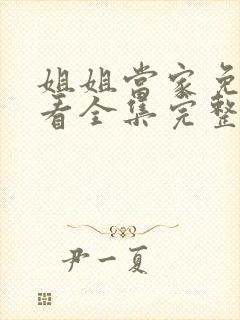 姐姐當家免
看全集完整
尹一夏